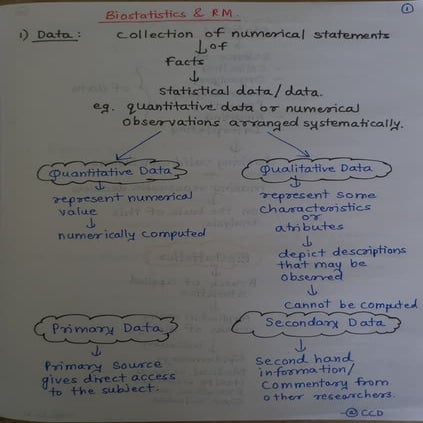 Biostatistics & RM.
1
1) Data: Collection of numerical statements
of
Facts
Statistical data/data.
eg. quantitative data or numerical
observations arranged systematically.
Quantitative Data
represent numerical
value
numerically computed
Qualitative Data
represent some
characteristics
or
atributes
depict descriptions
that may be
observed
Cannot be computed
Primary Data
Primary Source
gives direct access
to the subject.
Secondary Data
Second hand
information/
Commentary from
other researchers.
CCD